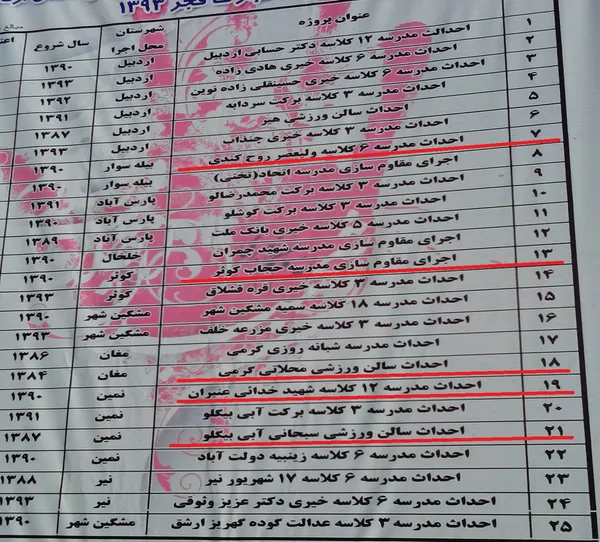 فجر ۱۳۹۳
عنوان پروژه شهرستان محل اجرا سال شروع
۱ احداث مدرسه ۱۲ کلاسه دکتر حسابی اردبیل اردبیل ۱۳۹۰
۲ احداث مدرسه ۶ کلاسه خیری هادی زاده اردبیل ۱۳۹۳
۳ احداث مدرسه ۶ کلاسه خیری زاده نوین اردبیل ۱۳۹۲
۴ احداث مدرسه ۳ کلاسه برکت سردابه اردبیل ۱۳۹۱
۵ احداث سالن ورزشی هیر اردبیل ۱۳۸۷
۶ احداث مدرسه ۳ کلاسه خیری چنداب اردبیل ۱۳۹۳
۷ احداث مدرسه ۶ کلاسه ولیعصر روح کندی بیله سوار ۱۳۹۰
۸ اجرای مقاوم سازی مدرسه اتحاد(تختی) بیله سوار ۱۳۹۰
۹ احداث مدرسه ۳ کلاسه برکت محمدرضالو پارس آباد ۱۳۹۱
۱۰ احداث مدرسه ۳ کلاسه برکت گوشلو پارس آباد ۱۳۹۰
۱۱ احداث مدرسه ۵ کلاسه خیری بانک ملت پارس آباد ۱۳۸۹
۱۲ اجرای مقاوم سازی مدرسه شهید چمران خلخال ۱۳۹۰
۱۳ اجرای مقاوم سازی مدرسه حجاب کوثر کوثر ۱۳۹۰
۱۴ احداث مدرسه ۳ کلاسه خیری قره قشلاق کوثر ۱۳۹۳
۱۵ احداث مدرسه ۱۸ کلاسه سمیه مشگین شهر مشگین شهر ۱۳۹۰
۱۶ احداث مدرسه ۳ کلاسه خیری مزرعه خلف مشگین شهر ۱۳۹۳
۱۷ احداث مدرسه شبانه روزی گرمی مغان ۱۳۸۶
۱۸ احداث سالن ورزشی محلاتی گرمی مغان ۱۳۸۴
۱۹ احداث مدرسه ۱۲ کلاسه شهید خدائی عنبران نمین ۱۳۹۰
۲۰ احداث مدرسه ۳ کلاسه برکت آبی بیگلو نمین ۱۳۹۱
۲۱ احداث سالن ورزشی سبحانی آبی بیگلو نمین ۱۳۸۷
۲۲ احداث مدرسه ۶ کلاسه زینبیه دولت آباد نمین ۱۳۹۰
۲۳ احداث مدرسه ۶ کلاسه ۱۷ شهریور نیر نیر ۱۳۸۸
۲۴ احداث مدرسه ۶ کلاسه خیری دکتر عزیز وثوقی نیر ۱۳۹۳
۲۵ احداث مدرسه ۳ کلاسه عدالت گوده کهریز ارشق مشگین شهر ۱۳۹۰